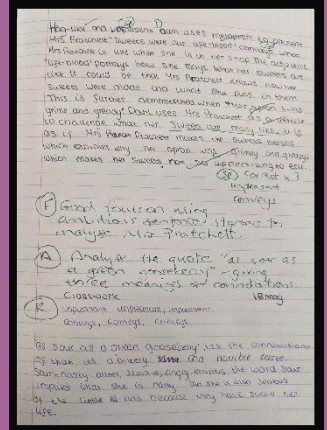 Hag-like and unpleasant Dahl uses metaphors to present
Mrs Pratchett "sweets were our life-blood" conveys what
Mrs Pratchett is like when she is in her shop the adjective
"life-blood" portrays how she says what her sweets are
like. It could be that Mrs Pratchett knows how her
sweets were made and what she puts in them.
This is further demonstrated when "her apron was
grime and greasy" Dahl uses Mrs Pratchett as a
to what her sweets are really like. It is
as if Mrs Pratchett makes the sweets herself
which explains why her apron was grimey and greasy
which makes her sweets not so appetizing to eat.
Sp Correct x 3
unpleasant
conveys
F Good focus on using
ambitious sentence starters to
analyse Mrs Pratchett.
A Analyse the quote "as sour as
a green gooseberry" - giving
three meanings or connotations.
Classwork 18 may
R unpleasant, unpleasant, unpleasant
conveys, conveys, conveys
as sour as a green gooseberry, has the connotations
of that as a bitery and horrible taste
Sour= nasty, bitter, jealous, angry, envious, the word sour
implies that she is nasty but she is also jealous
of the little because they have
life.